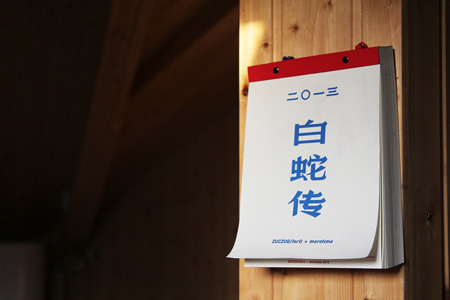 二〇一三
白蛇传
ZUCZUG/farli + moretime